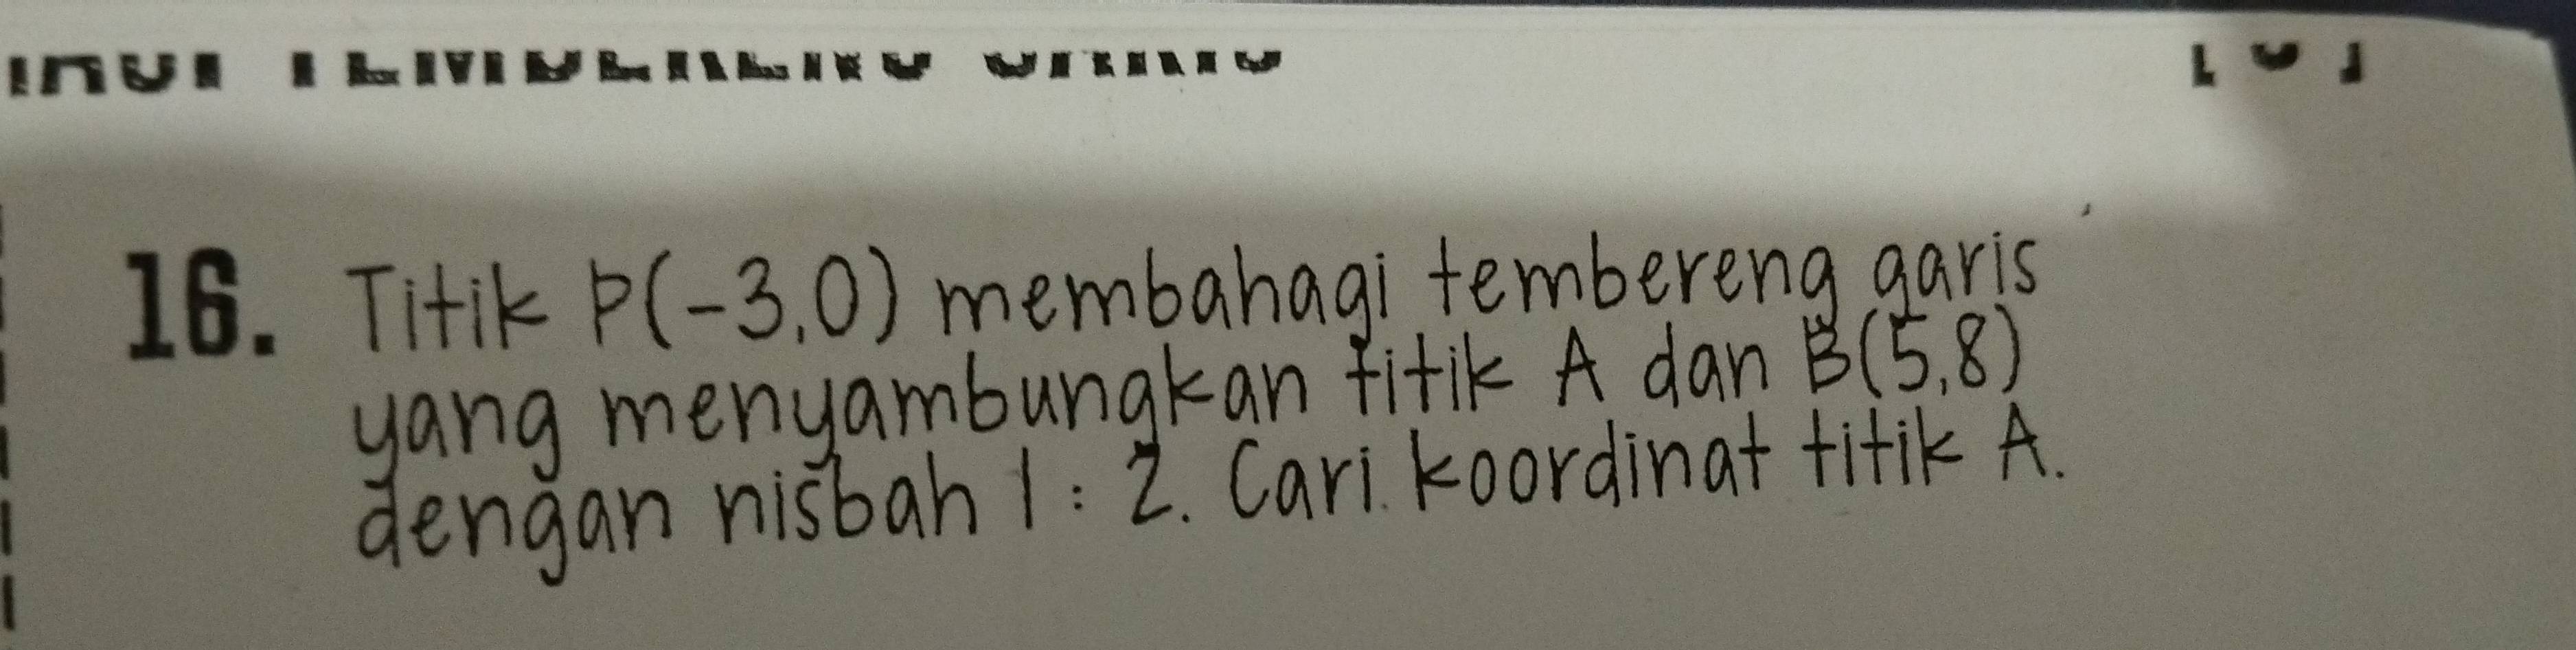 16. Titik P(-3,0) membahagi tembereng garis
yang menyambungkan titik A dan B(5,8)
dengan nisbah 1:2. Cari koordinat titik A.